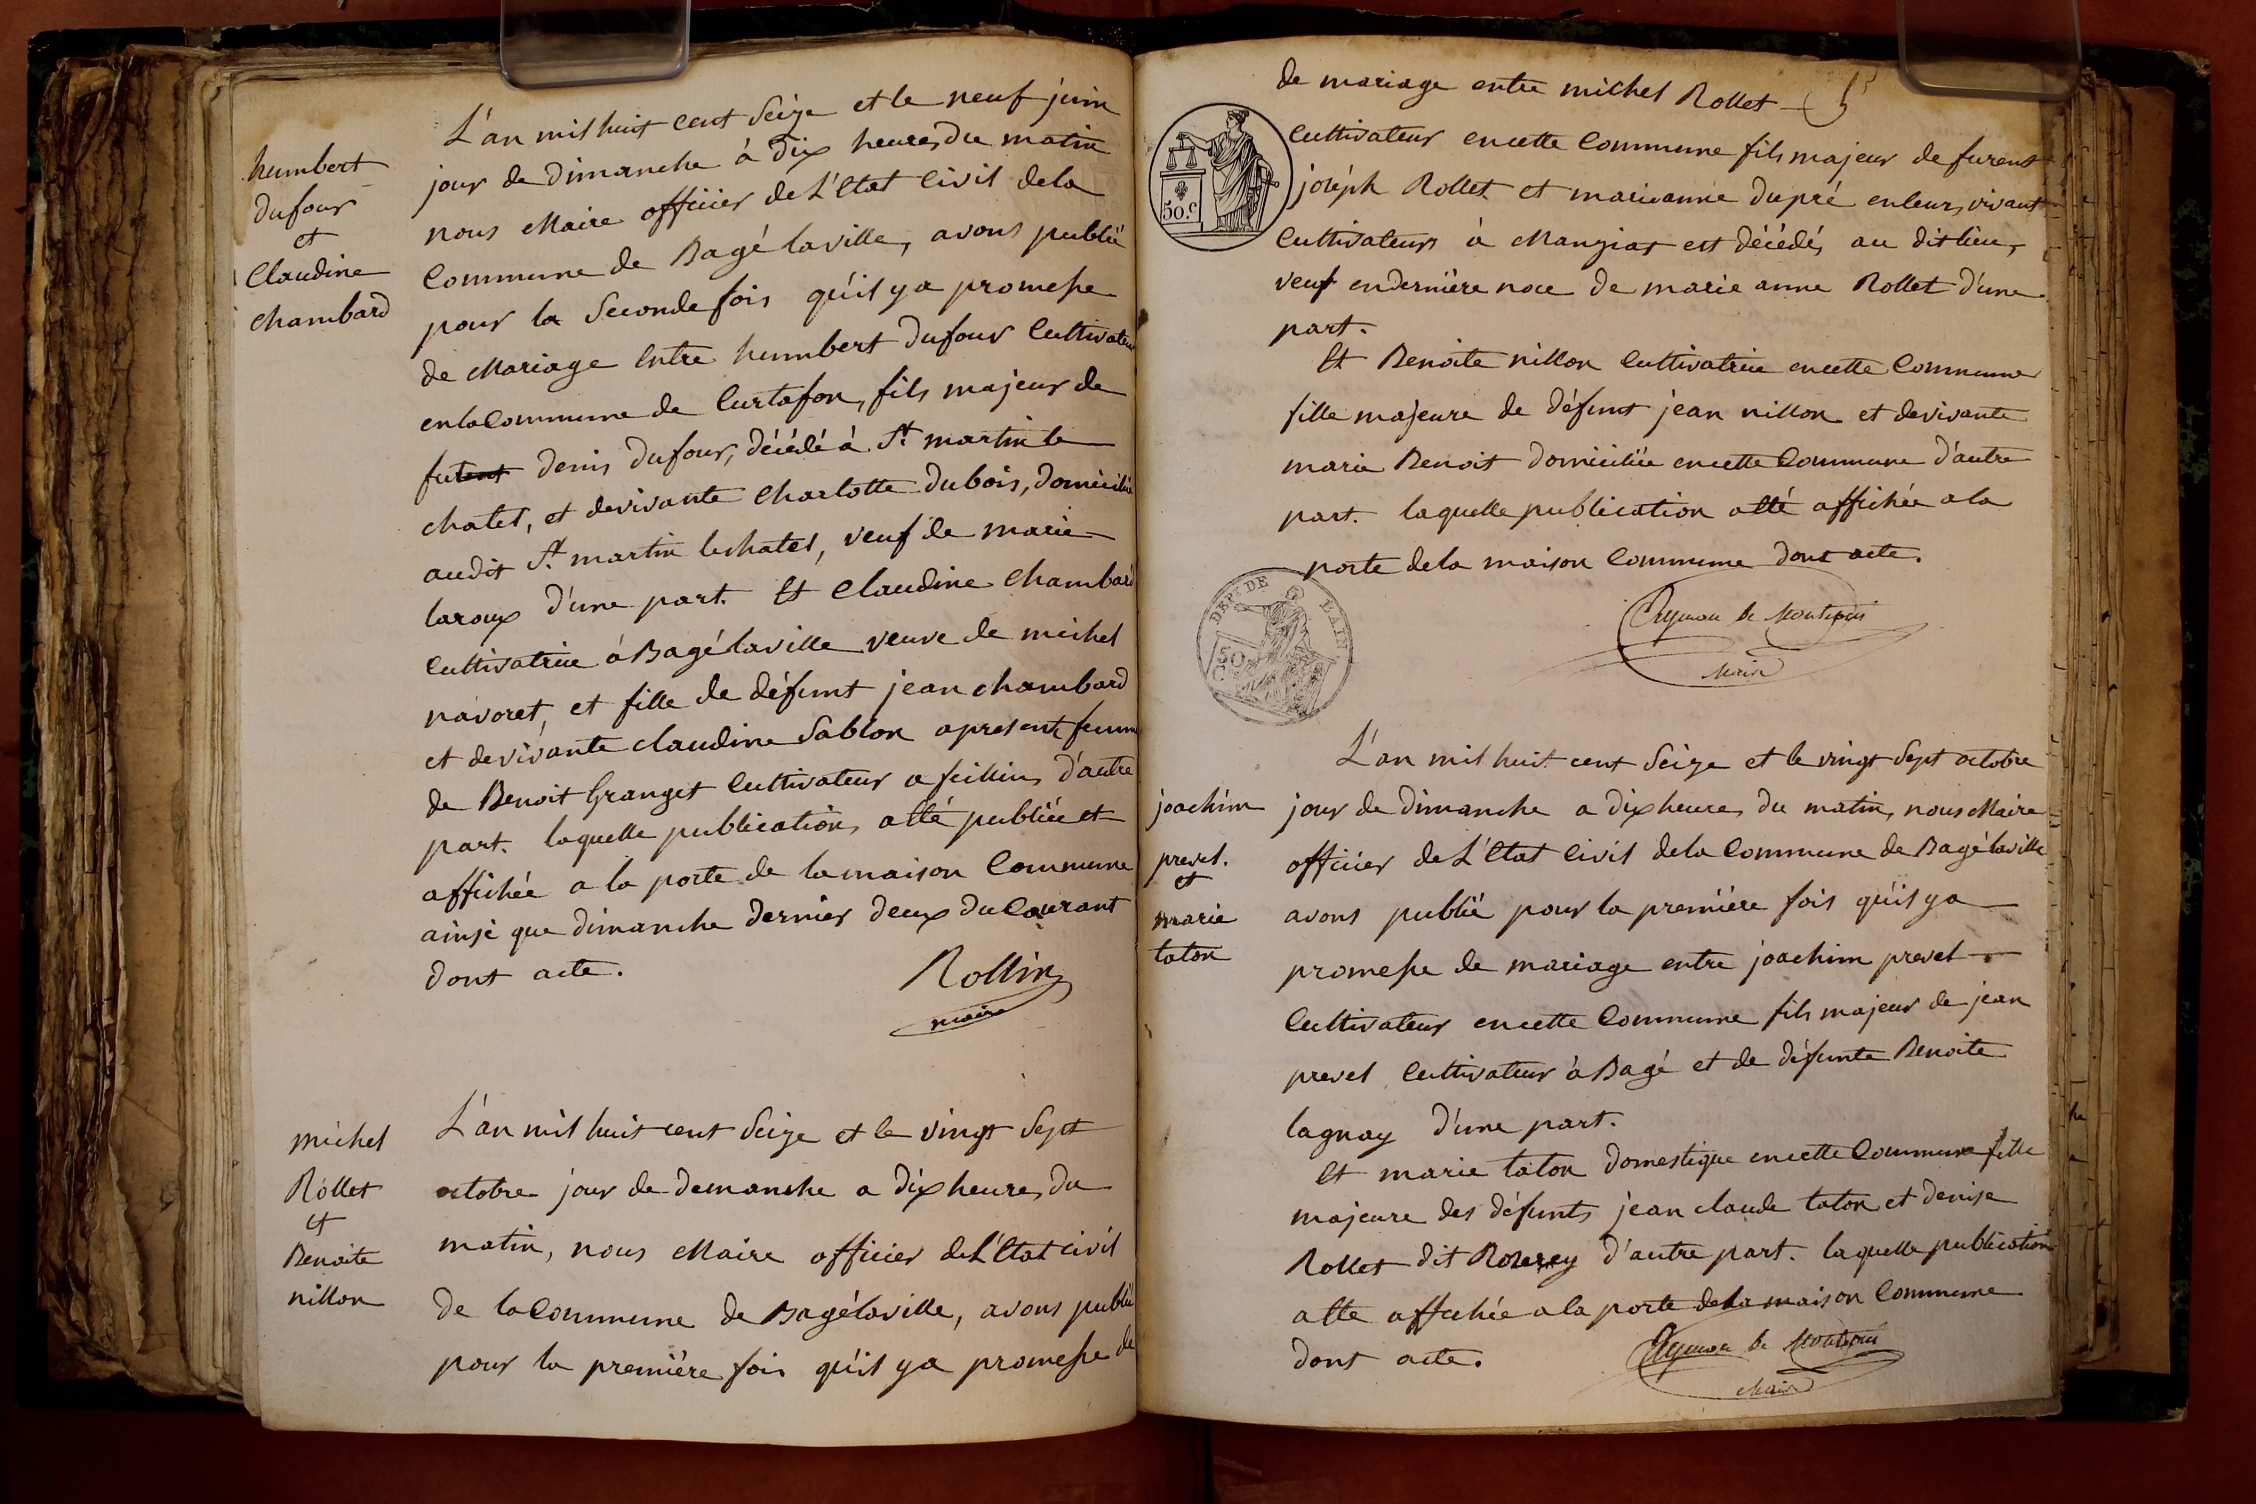 humbert
dufour
et
Claudine
chambard
L'an mil huit cent Seize et le neuf juin
jour de dimanche à dix heures du matin
nous Maire officier de L'Etat Civil dela
Commune de Bagé laville, avons publié
pour la Seconde fois qu'il ya promesse
de Mariage Entre humbert dufour Cultivateur
en la Commune de Curtafon, fils majeur de
denis dufour, décédé à St. martin le
chatel, et devivante Charlotte dubois, domiciliée
audit St. martin lechatel, veuf de marie
laroux d'une part. Et Claudine Chambard
Cultivatrice à Bagé laville veuve de michel
navoret, et fille de défunt jean chambard
et devivante claudine Sablon apresent femme
de Benoit Granget Cultivateur a feillins d'autre
part. laquelle publication, a été publiée et
affichée a la porte de la maison Commune
ainsi que dimanche dernier deux du Courant
dont acte.
Rollin
maire
michel
Rollet
et
Benoite
nillon
L'an mil huit cent Seize et le vingt Sept
octobre jour de demanche a dix heures du
matin, nous Maire officier de L'Etat civil
de la Commune de Bagé laville, avons publié
pour la première fois qu'il ya promesse de
de mariage entre michel Rollet
50.c
Cultivateur encette Commune fils majeur de furent
joseph Rollet et marieanne dupré enleurs vivant
Cultivateurs à Manziat est décédés au dit lieu,
veuf endernière noce de marie anne Rollet d'une
part.
Et Benoite nillon Cultivatrice encette Commune
fille majeure de défunt jean nillon et devivante
marie Benoit domiciliée encette Commune d'autre
part. laquelle publication a été affichée a la
porte dela maison Commune dont acte.
DEPT. DE L'AIN
50
C
Aymon de Montepin
Maire
joachim
prevel.
et
marie
taton
L'an mil huit cent Seize et le vingt Sept octobre
jour de dimanche a dix heures du matin, nous Maire
officier de L'Etat Civil dela Commune de Bagé laville
avons publié pour la première fois qu'il ya
promesse de mariage entre joachim prevel
Cultivateur encette Commune fils majeur de jean
prevel Cultivateur à Bagé et de défunte Benoite
lagnay d'une part.
Et marie taton domestique encette Commune fille
majeure des défunts jean claude taton et denise
Rollet dit d'autre part. laquelle publication
a été affichée a la porte dela maison Commune
dont acte.
Aymon de Montepin
Maire